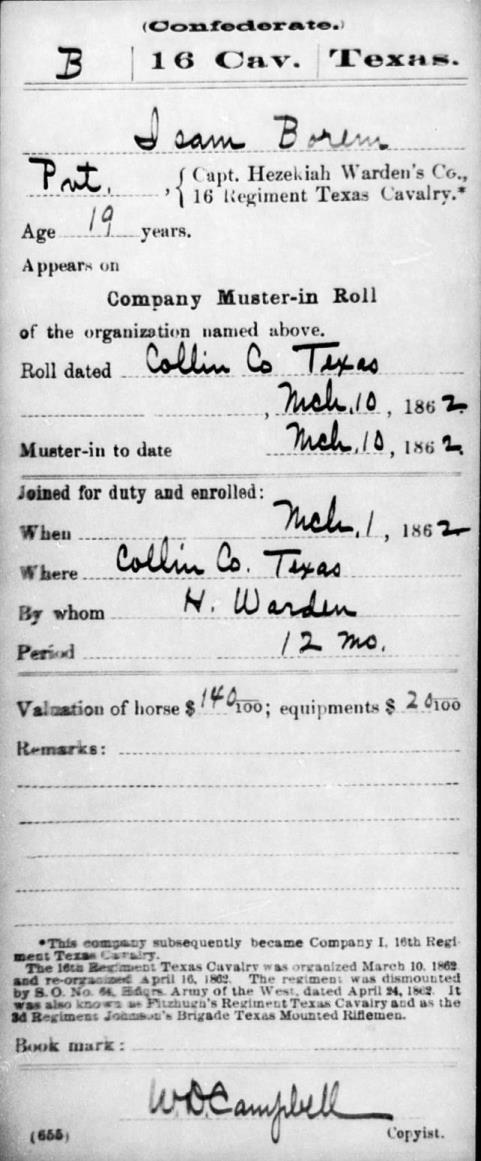 (Confederate.)
B | 16 Cav. | Texas.
Isam Borem
Pvt., { Capt. Hezekiah Warden's Co., 16 Regiment Texas Cavalry.*
Age 19 years.
Appears on
Company Muster-in Roll
of the organization named above.
Roll dated Collin Co Texas
, Mch. 10, 1862.
Muster-in to date Mch. 10, 1862.
Joined for duty and enrolled:
When Mch. 1, 1862
Where Collin Co. Texas
By whom H. Warden
Period 12 mo.
Valuation of horse $ 140/100; equipments $ 20/100
Remarks:
*This company subsequently became Company I, 16th Regi-
ment Texas Cavalry.
The 16th Regiment Texas Cavalry was organized March 10, 1862
and re-organized April 16, 1862. The regiment was dismounted
by S. O. No. 64, Hdqrs. Army of the West, dated April 24, 1862. It
was also known as Fitzhugh's Regiment Texas Cavalry and as the
3d Regiment Johnson's Brigade Texas Mounted Riflemen.
Book mark:
W. D. Campbell
(655) Copyist.